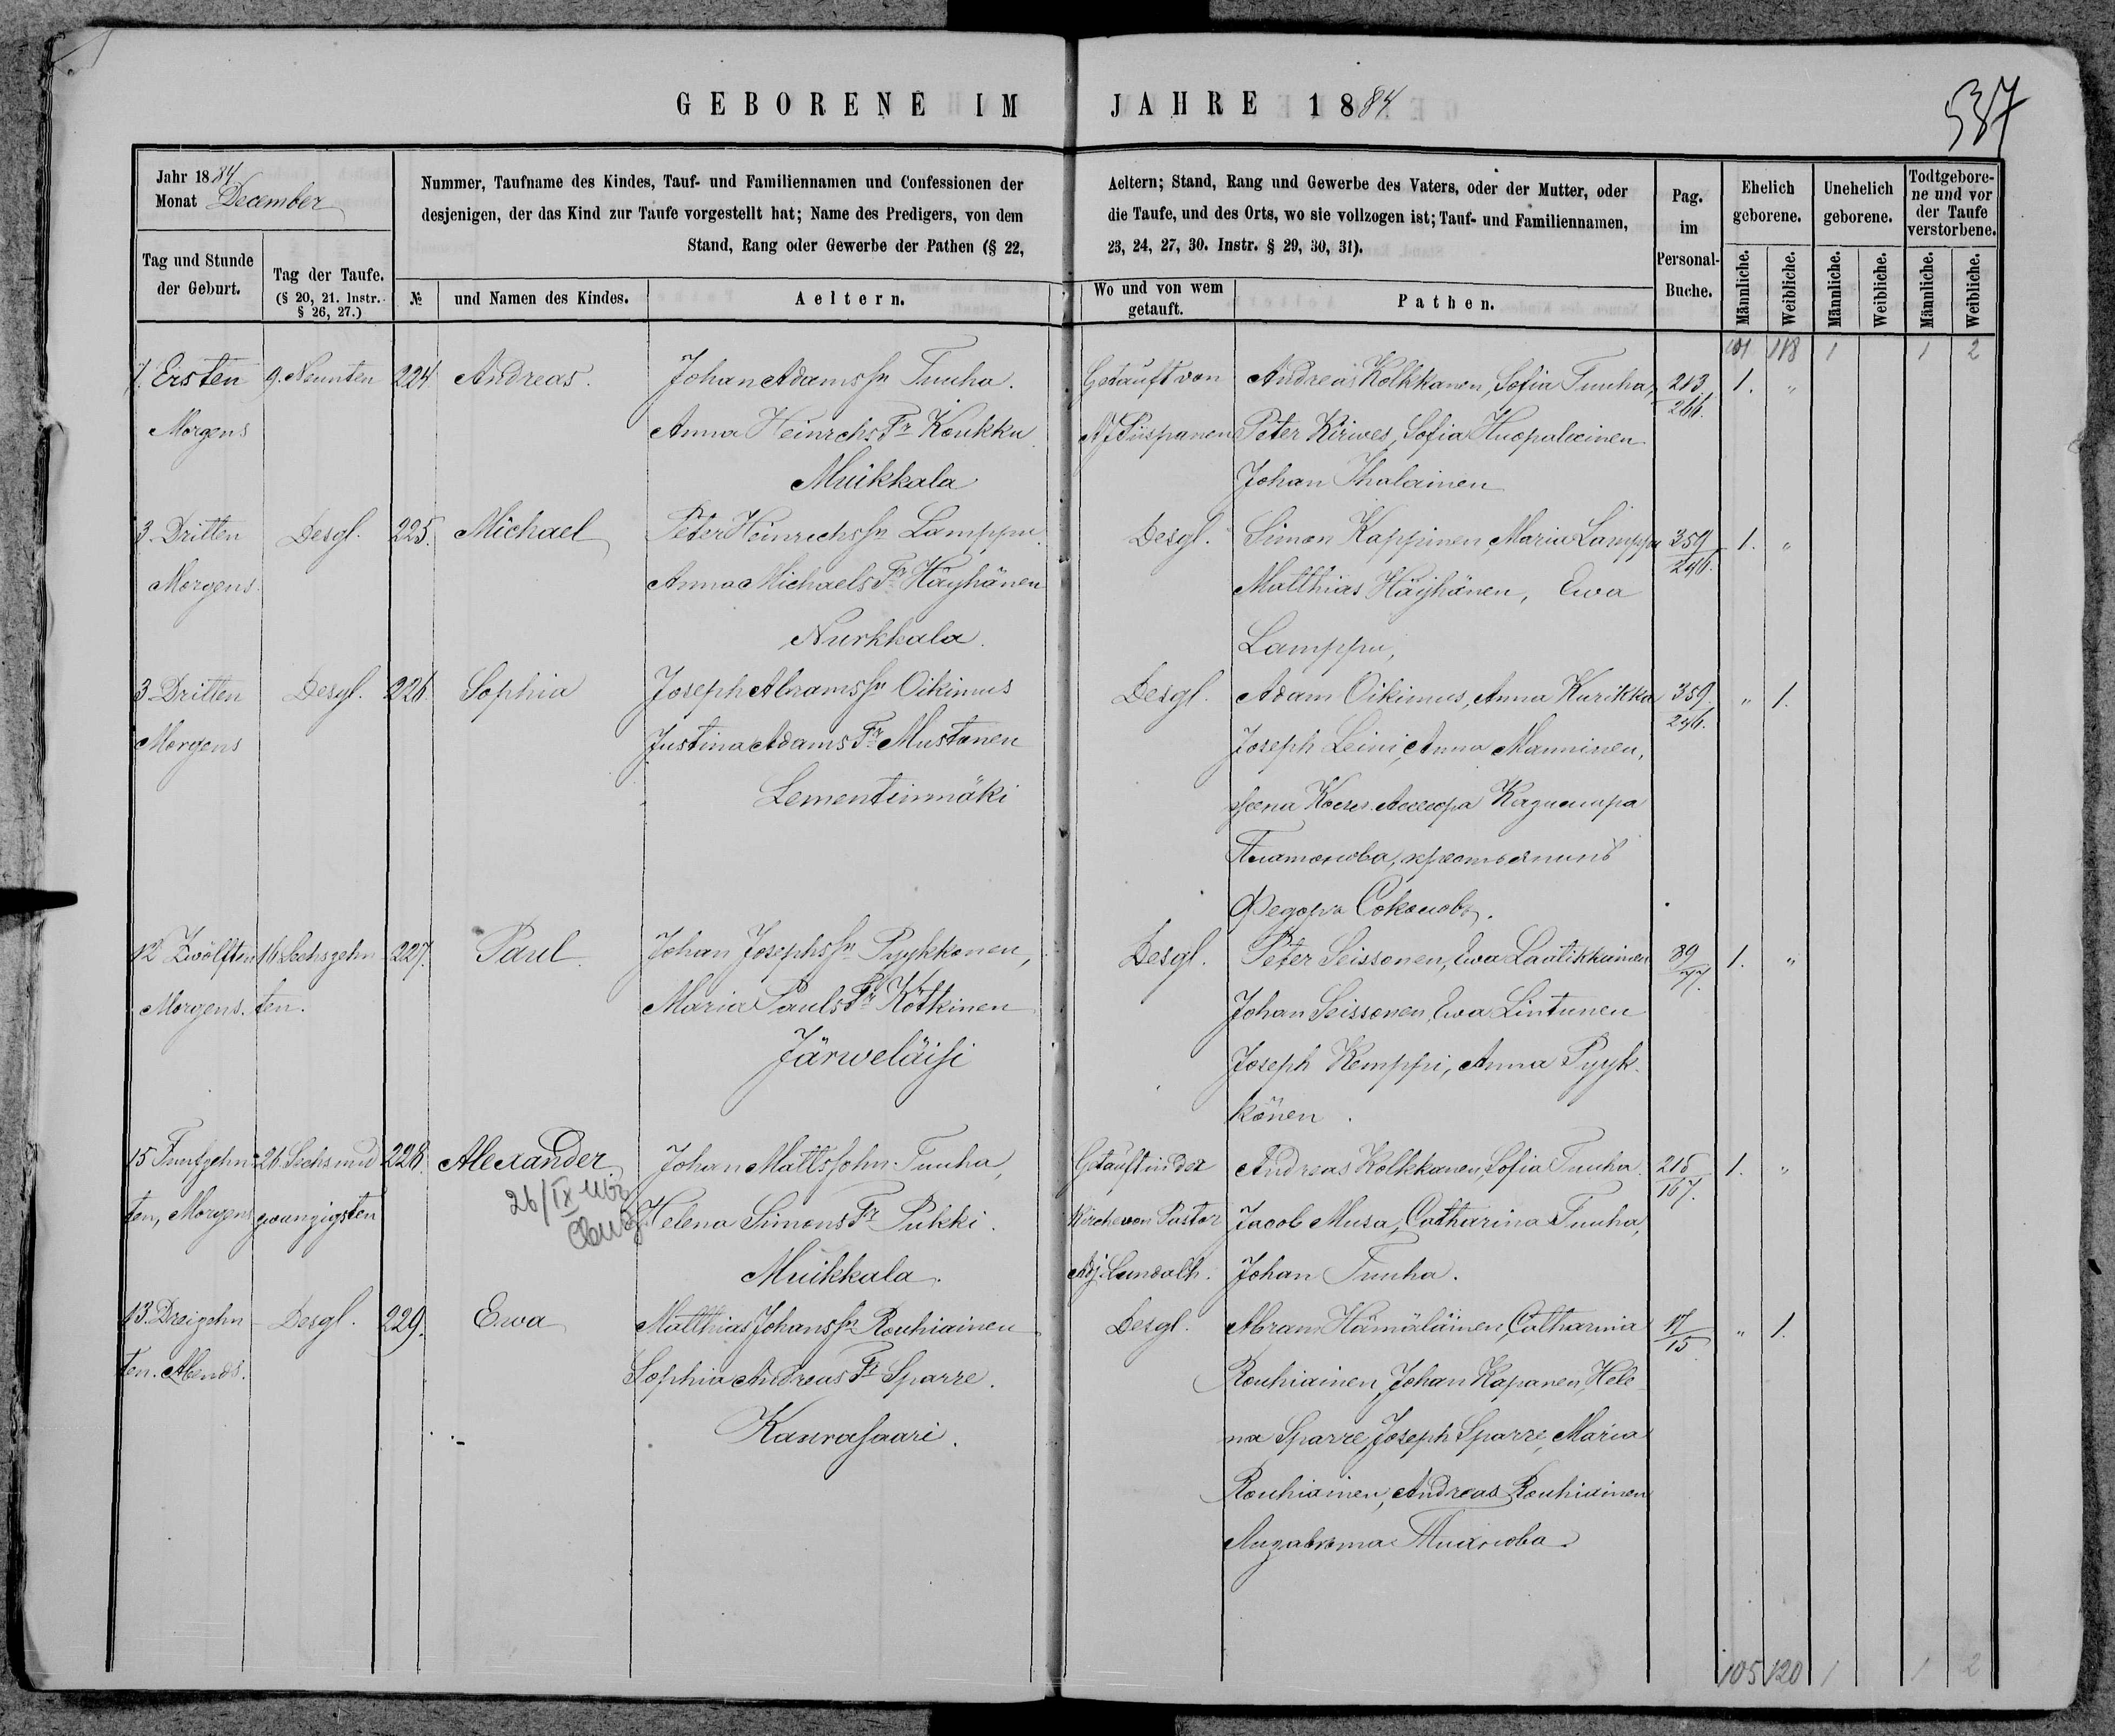 GEBORENE IM JAHRE 1884
537
Jahr 1884
Monat December
Nummer, Taufname des Kindes, Tauf- und Familiennamen und Confessionen der
desjenigen, der das Kind zur Taufe vorgestellt hat; Name des Predigers, von dem
Stand, Rang oder Gewerbe der Pathen (§ 22,
Aeltern; Stand, Rang und Gewerbe des Vaters, oder der Mutter, oder
die Taufe, und des Orts, wo sie vollzogen ist; Tauf- und Familiennamen,
23, 24, 27, 30. Instr. § 29, 30, 31).
Pag.
im
Personal-
Buche.
Ehelich
geborene.
Unehelich
geborene.
Todtgebore-
ne und vor
der Taufe
verstorbene.
Tag und Stunde
der Geburt.
Tag der Taufe.
(§ 20, 21. Instr.
§ 26, 27.)
№
und Namen des Kindes.
Aeltern.
Wo und von wem
getauft.
Pathen.
Männliche.
Weibliche.
Männliche.
Weibliche.
Männliche.
Weibliche.
101 118 1 1 2
1. Ersten 9. Neunten 224 Andreas. Johan Adamssn Tuuha. Getauft von Andreas Kolkkanen, Sofia Tuuha, 213 1. "
Morgens Anna Heinrchs Tr Koukku A J Piispanen Peter Kirwes, Sofia Huopalainen 266.
Muikkala Johan Ihalainen
3. Dritten Desgl. 225. Michael Peter Heinrichssn Lamppu. Desgl. Simon Kappinen, Maria Lamppu 359 1. "
Morgens. Anna Michaels Tr Häyhänen Matthias Häyhänen, Ewa 246.
Nurkkala. Lamppu,
3. Dritten Desgl. 226. Sophia Joseph Abramssn Oikimus Desgl. Adam Oikimus, Anna Kurikka 359. " 1.
Morgens Justina Adams Tr Mustonen Joseph Leini, Anna Manninen, 246.
Lementinmäki жена Казимира
Платонова, крестьянинъ
Федоръ Соколовъ.
12 Zwölften 16 Sechszehn 227. Paul Johan Josephssn Pyykkonen, Desgl. Peter Seissonen, Ewa Lautikkainen 89 1. "
Morgens. ten. Maria Pauls Tr Kötkinen Johan Seissonen, Ewa Lintunen
Järweläisi Joseph Kemppi, Anna Pyyk-
könen.
15 Fünfzehn- 26. Sechs und 228. Alexander Johan Mattssohn Tuuha, Getauft in der Andreas Kolkkanen, Sofia Tuuha. 1. "
26/IX
ten, Morgens zwanzigsten Helena Simons Tr Pukki. Kirche von Pastor Jacob Musa, Catharina Tuuha, 167.
Muikkala. Adj. Johan Tuuha.
13. Dreizehn- Desgl. 229. Ewa Matthias Johanssn Rouhiainen Desgl. Abram Hämäläinen, Catharina 17 " 1.
ten. Abends. Sophia Andreas Tr Sparre. Rouhiainen, Johan Kapanen, Hele- 15.
Kaurasaari. na Sparre, Joseph Sparre, Maria
Rouhiainen, Andreas Rouhiainen
Лизавета
105 120 1 1 2